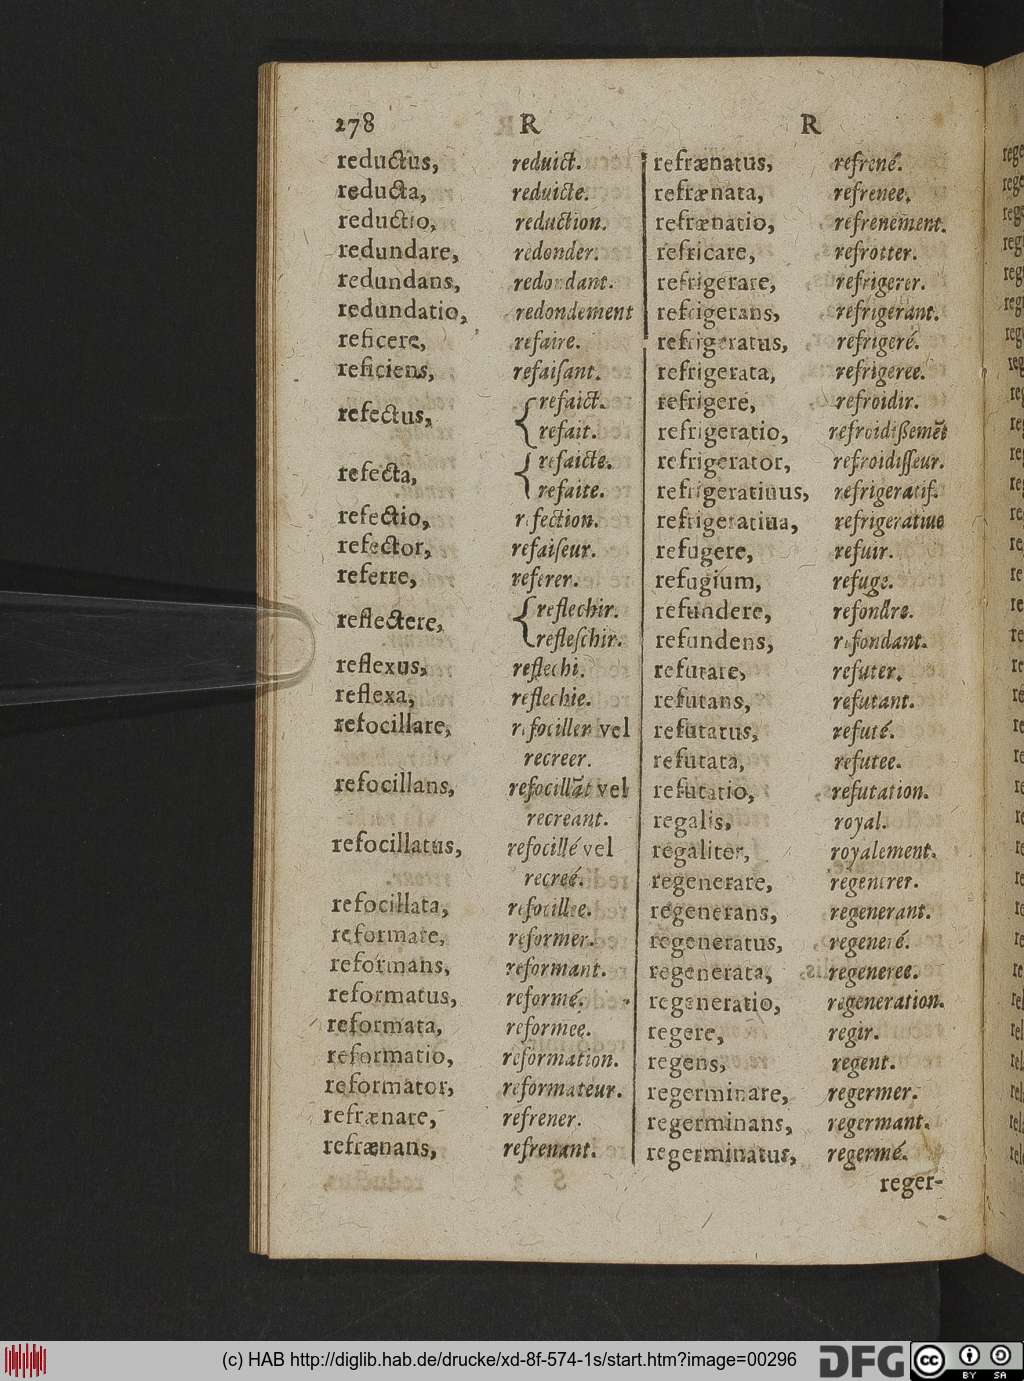 278 R R
reductus, reduict.
reducta, reduicte.
reductio, reduction.
redundare, redonder.
redundans, redondant.
redundatio, redondement
reficere, refaire.
reficiens, refaiſant.
refectus, refaict.
refait.
refecta, refaicte.
refaite.
refectio, refection.
refector, refaiſeur.
referre, referer.
reflectere, reflechir.
refleſchir.
reflexus, reflechi.
reflexa, reflechie.
refocillare, refociller vel
recreer.
refocillans, refocillāt vel
recreant.
refocillatus, refocillé vel
recreé.
refocillata, refocillee.
reformare, reformer.
reformans, reformant.
reformatus, reformé.
reformata, reformee.
reformatio, reformation.
reformator, reformateur.
refrænare, refrener.
refrænans, refrenant.
refrænatus, refrené.
refrænata, refrenee.
refrænatio, refrenement.
refricare, refrotter.
refrigerare, refrigerer.
refrigerans, refrigerant.
refrigeratus, refrigeré.
refrigerata, refrigeree.
refrigere, refroidir.
refrigeratio, refroidißemēt
refrigerator, refroidiſſeur.
refrigeratiuus, refrigeratif.
refrigeratiua, refrigeratiue
refugere, refuir.
refugium, refuge.
refundere, refondre.
refundens, refondant.
refutare, refuter.
refutans, refutant.
refutatus, refuté.
refutata, refutee.
refutatio, refutation.
regalis, royal.
regaliter, royalement.
regenerare, regenerer.
regenerans, regenerant.
regeneratus, regeneré.
regenerata, regeneree.
regeneratio, regeneration.
regere, regir.
regens, regent.
regerminare, regermer.
regerminans, regermant.
regerminatus, regermé.
reger-
(c) HAB http://diglib.hab.de/drucke/xd-8f-574-1s/start.htm?image=00296
DFG
cc BY SA